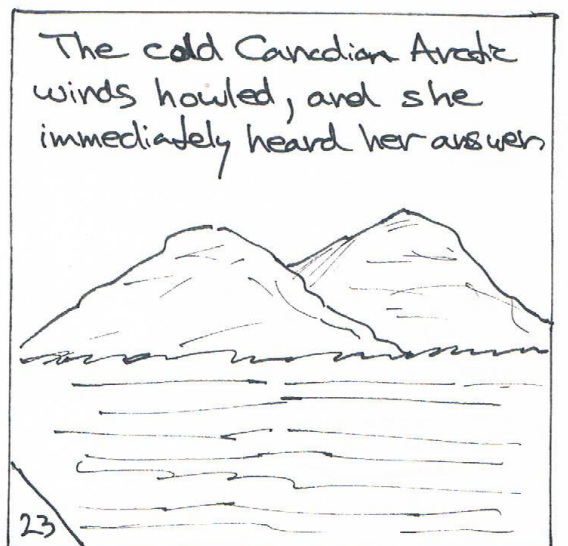 The cold Canadian Arctic
winds howled, and she
immediately heard her answer.
23